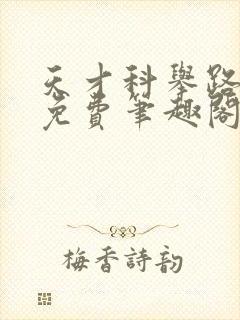 天才科舉路
免費筆趣閣
梅香詩韵